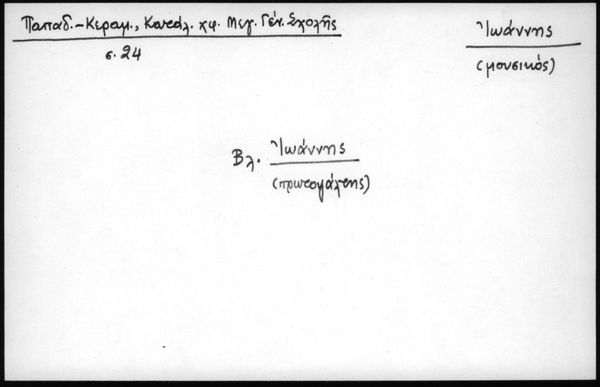 Παπαδ.-Κεραμ., Κατάλ. χφ. Μεγ. Γέν. Σχολῆς
σ. 24
Ἰωάννης
(μουσικός)
Βλ. Ἰωάννης
(πρωτοψάλτης)